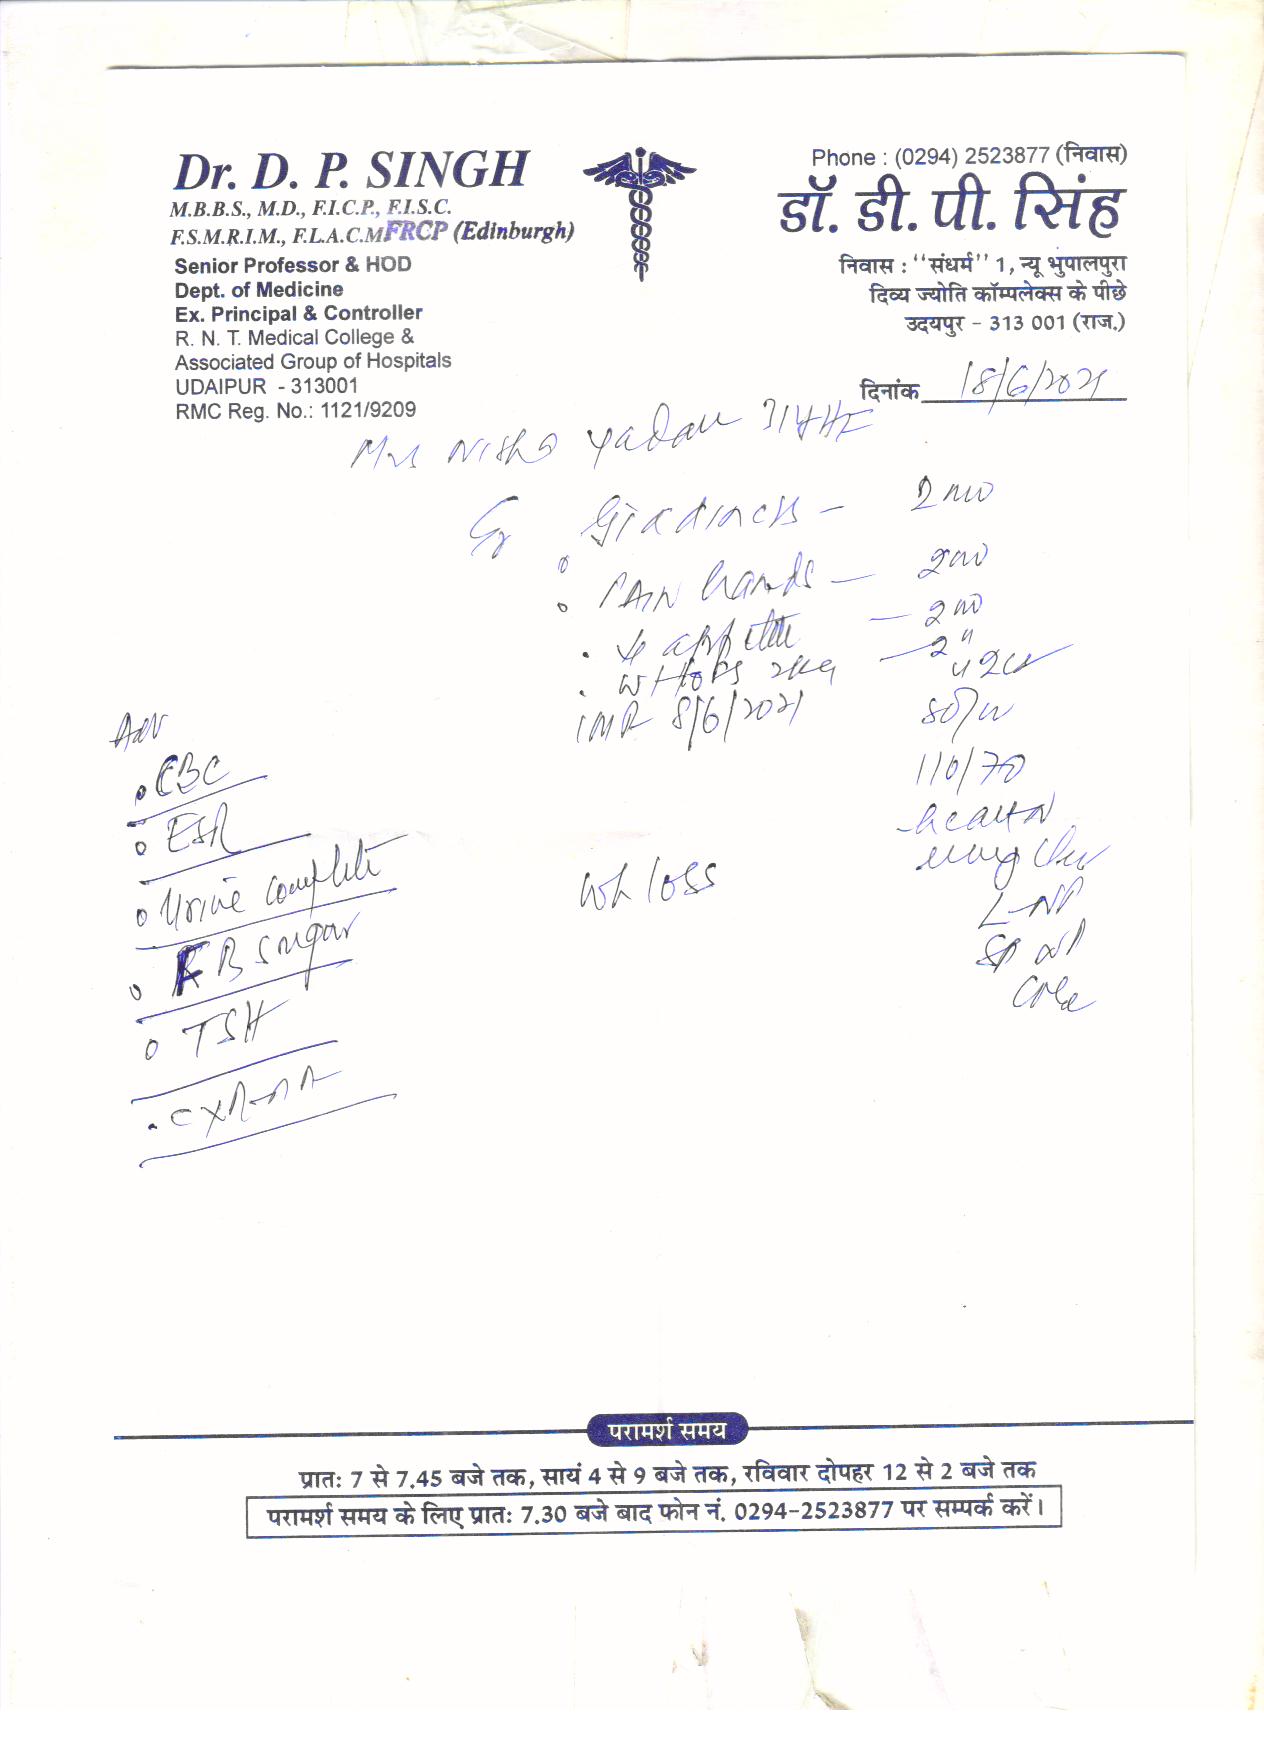 Dr. D. P. SINGH
M.B.B.S., M.D., F.I.C.P., F.I.S.C.
F.S.M.R.I.M., F.L.A.C.M FRCP (Edinburgh)
Senior Professor & HOD
Dept. of Medicine
Ex. Principal & Controller
R. N. T. Medical College &
Associated Group of Hospitals
UDAIPUR - 313001
RMC Reg. No.: 1121/9209
Phone : (0294) 2523877 (निवास)
डॉ. डी. पी. सिंह
निवास : "संधर्म" 1, न्यू भुपालपुरा
दिव्य ज्योति कॉम्पलेक्स के पीछे
उदयपुर - 313 001 (राज.)
दिनांक 18/6/2021
Mrs Nisha Yadav
Giddiness - 2 mo
PAIN hands - 2 mo
appetite - 2 mo
wt loss 2kg - 2"
LMP 8/6/2021
42
80/m
110/70
heart N
lung clear
L-NP
SP NP
wt loss
Adv
CBC
ESR
Urine complete
F B sugar
TSH
CXR-PA
परामर्श समय
प्रातः 7 से 7.45 बजे तक, सायं 4 से 9 बजे तक, रविवार दोपहर 12 से 2 बजे तक
परामर्श समय के लिए प्रातः 7.30 बजे बाद फोन नं. 0294-2523877 पर सम्पर्क करें।